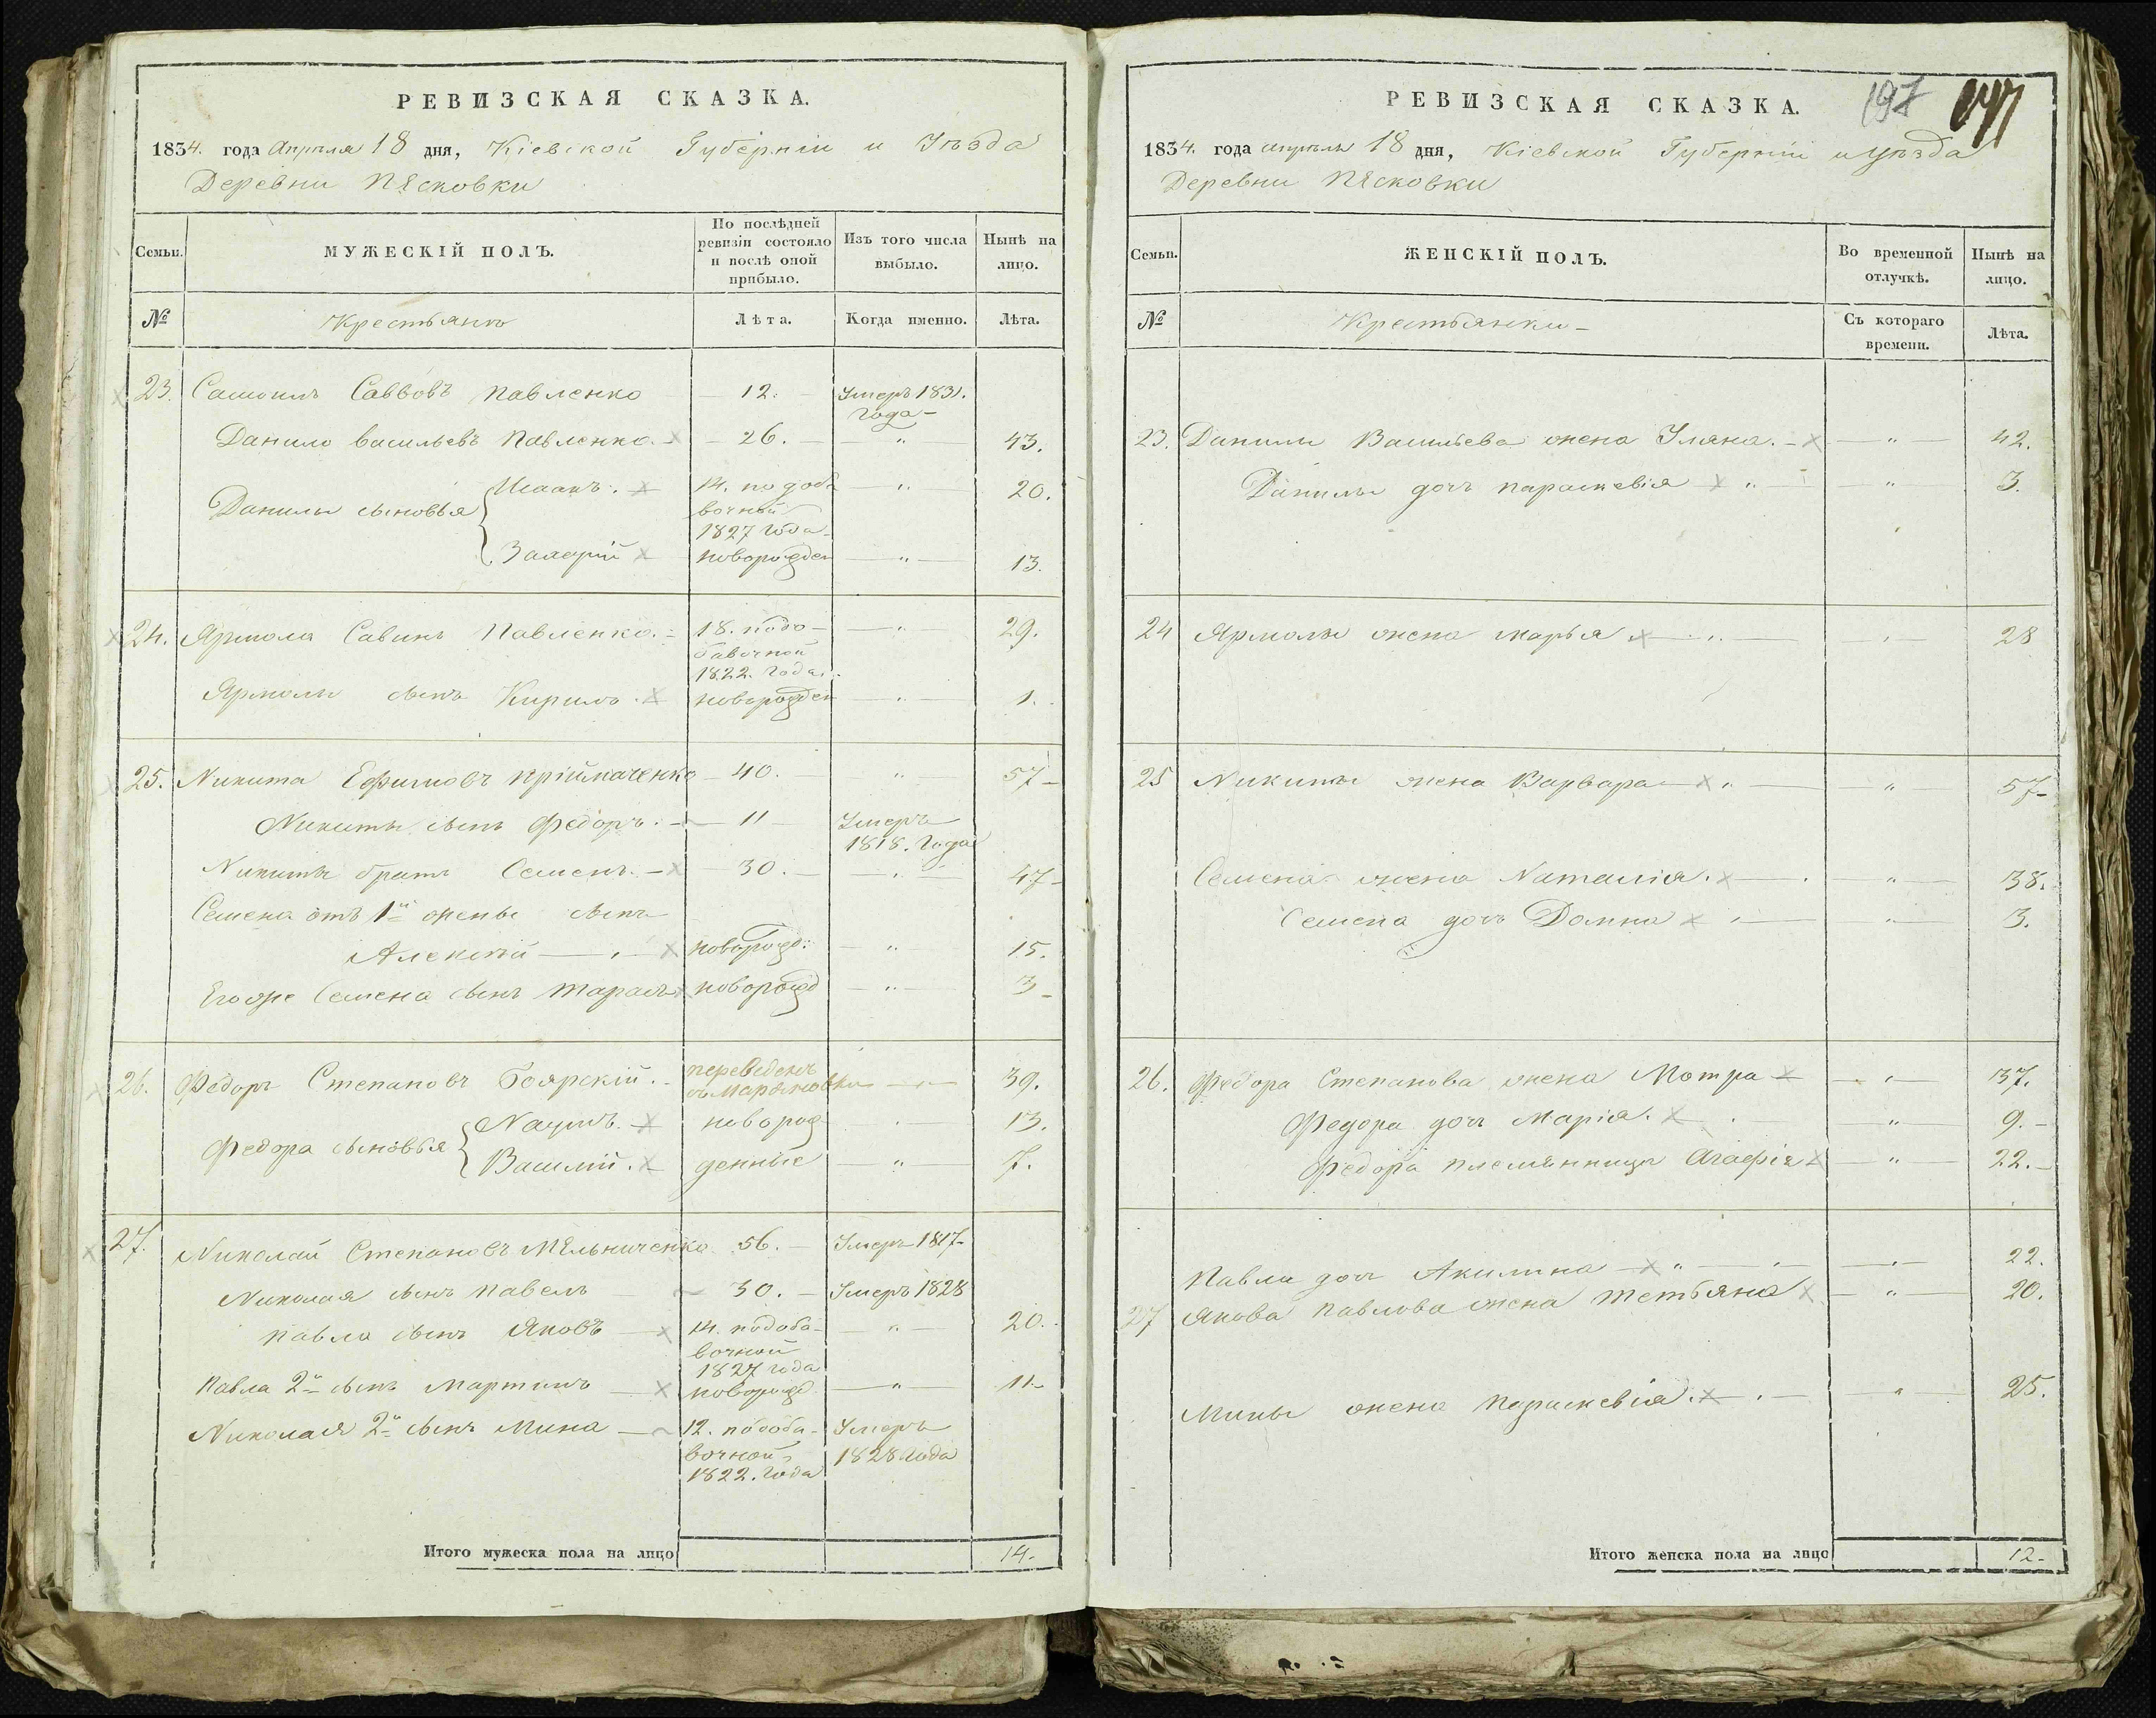 РЕВИЗСКАЯ СКАЗКА.
1834. года Апреля 18 дня, Кіевской Губерніи и Уѣзда
Деревни Пясковки
Семьи.
МУЖЕСКІЙ ПОЛЪ.
По послѣдней ревизіи состояло и послѣ оной прибыло.
Изъ того числа выбыло.
Нынѣ на лицо.
№
Крестьянъ
Лѣта.
Когда именно.
Лѣта.
23. Самоилъ Саввовъ Павленко 12. Умеръ 1831. года
Данило Васильевъ Павленко. 26. " 43.
Данилы сыновья
Исаакъ. 14. по доба вочной 1827 года " 20.
Захарій новорожден " 13.
24. Ярмола Савинъ Павленко. 18. подо бавочной 1822. года. " 29.
Ярмолы сынъ Кирило. новорожден " 1.
25. Никита Ефимовъ Пріймаченко 40. " 57
Никиты сынъ Федоръ. 11 Умеръ 1818. года
Никиты братъ Семенъ. 30. " 47
Семена отъ 1й жены сынъ
Алексѣй новорожд: " 15.
Егоже Семена сынъ Тарасъ новорожд " 3
26. Федоръ Степановъ Боярскій. переведенъ съ Марьяновки " 39.
Федора сыновья
Наумъ. новорож " 13.
Василій. денные " 7.
27. Николай Степановъ Мѣльниченко 56. Умеръ 1817
Николая сынъ Павелъ 30. Умеръ 1828
Павла сынъ Яковъ 14. подоба вочной 1827 года " 20.
Павла 2й сынъ Мартинъ новорожд " 11
Николая 2й сынъ Мина 12. подоба вочной 1822. года Умеръ 1828 года
Итого мужеска пола на лицо 14.
197
РЕВИЗСКАЯ СКАЗКА.
1834. года апреля 18 дня, Кіевской Губерніи и уѣзда
Деревни Пясковки
Семьи.
ЖЕНСКІЙ ПОЛЪ.
Во временной отлучкѣ.
Нынѣ на лицо.
№
Крестьянки
Съ котораго времени.
Лѣта.
23. Данилы Васильева жена Уляна. " 42.
Данилы дочь Параскевія " 3.
24 Ярмолы жена Марья " 28
25 Никиты жена Варвара " 57
Семена жена Наталія. " 38.
Семена дочь Домна " 3.
26. Федора Степанова жена Мотра " 37.
Федора дочь Марія. " 9.
Федора племянница Агафія " 22.
Павла дочь Акилина " 22.
27 Якова Павлова жена Тетьяна " 20.
Мины жена Параскевія. " 25.
Итого женска пола на лицо 12